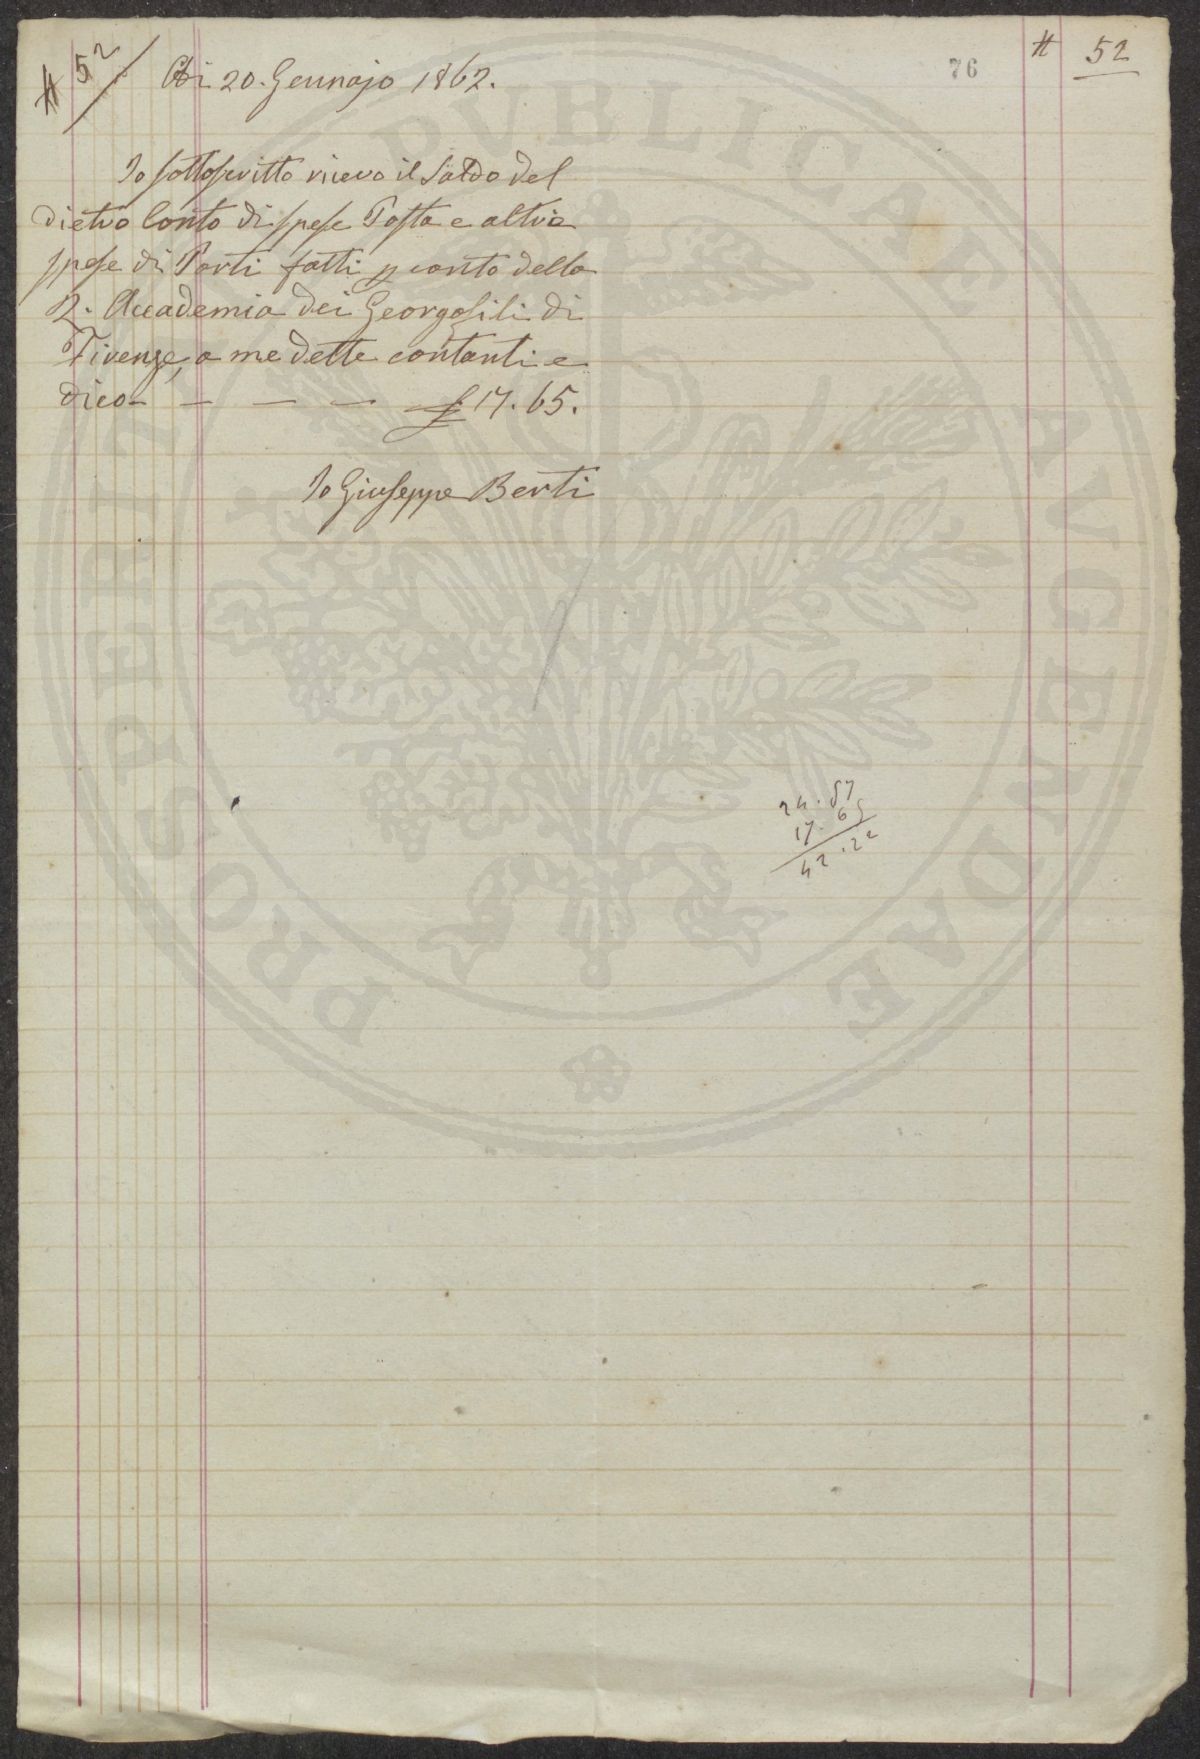 # 52
Adi 20. Gennajo 1862.
76
# 52
Io sottoscritto ricevo il Saldo del
dietro Conto di spese Posta e altre
spese di Porti fatti p conto della
R. Accademia dei Georgofili di
Firenze, a me dette contanti e
dico - - - - £ 17. 65.
Io Giuseppe Berti
24. 57
17. 65
42. 22
PROSPERITATI PUBLICAE AUGENDAE